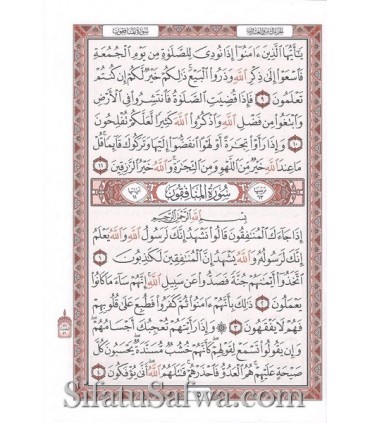 الجزء الثامن والعشرون سورة المنافقون
يَٰٓأَيُّهَا ٱلَّذِينَ ءَامَنُوٓا۟ إِذَا نُودِىَ لِلصَّلَوٰةِ مِن يَوْمِ ٱلْجُمُعَةِ
فَٱسْعَوْا۟ إِلَىٰ ذِكْرِ ٱللَّهِ وَذَرُوا۟ ٱلْبَيْعَ ۚ ذَٰلِكُمْ خَيْرٌ لَّكُمْ إِن كُنتُمْ
تَعْلَمُونَ ٩ فَإِذَا قُضِيَتِ ٱلصَّلَوٰةُ فَٱنتَشِرُوا۟ فِى ٱلْأَرْضِ
وَٱبْتَغُوا۟ مِن فَضْلِ ٱللَّهِ وَٱذْكُرُوا۟ ٱللَّهَ كَثِيرًا لَّعَلَّكُمْ تُفْلِحُونَ
١٠ وَإِذَا رَأَوْا۟ تِجَٰرَةً أَوْ لَهْوًا ٱنفَضُّوٓا۟ إِلَيْهَا وَتَرَكُوكَ قَآئِمًا ۚ قُلْ
مَا عِندَ ٱللَّهِ خَيْرٌ مِّنَ ٱللَّهْوِ وَمِنَ ٱلتِّجَٰرَةِ ۚ وَٱللَّهُ خَيْرُ ٱلرَّٰزِقِينَ ١١
سُورَةُ المُنَافِقُونَ
بِسْمِ ٱللَّهِ ٱلرَّحْمَٰنِ ٱلرَّحِيمِ
إِذَا جَآءَكَ ٱلْمُنَٰفِقُونَ قَالُوا۟ نَشْهَدُ إِنَّكَ لَرَسُولُ ٱللَّهِ ۗ وَٱللَّهُ يَعْلَمُ
إِنَّكَ لَرَسُولُهُۥ وَٱللَّهُ يَشْهَدُ إِنَّ ٱلْمُنَٰفِقِينَ لَكَٰذِبُونَ ١
ٱتَّخَذُوٓا۟ أَيْمَٰنَهُمْ جُنَّةً فَصَدُّوا۟ عَن سَبِيلِ ٱللَّهِ ۚ إِنَّهُمْ سَآءَ مَا كَانُوا۟
يَعْمَلُونَ ٢ ذَٰلِكَ بِأَنَّهُمْ ءَامَنُوا۟ ثُمَّ كَفَرُوا۟ فَطُبِعَ عَلَىٰ قُلُوبِهِمْ
فَهُمْ لَا يَفْقَهُونَ ٣ ۞ وَإِذَا رَأَيْتَهُمْ تُعْجِبُكَ أَجْسَامُهُمْ ۖ
وَإِن يَقُولُوا۟ تَسْمَعْ لِقَوْلِهِمْ ۖ كَأَنَّهُمْ خُشُبٌ مُّسَنَّدَةٌ ۖ يَحْسَبُونَ كُلَّ
صَيْحَةٍ عَلَيْهِمْ ۚ هُمُ ٱلْعَدُوُّ فَٱحْذَرْهُمْ ۚ قَٰتَلَهُمُ ٱللَّهُ ۖ أَنَّىٰ يُؤْفَكُونَ ٤
SifatuSafwa.com